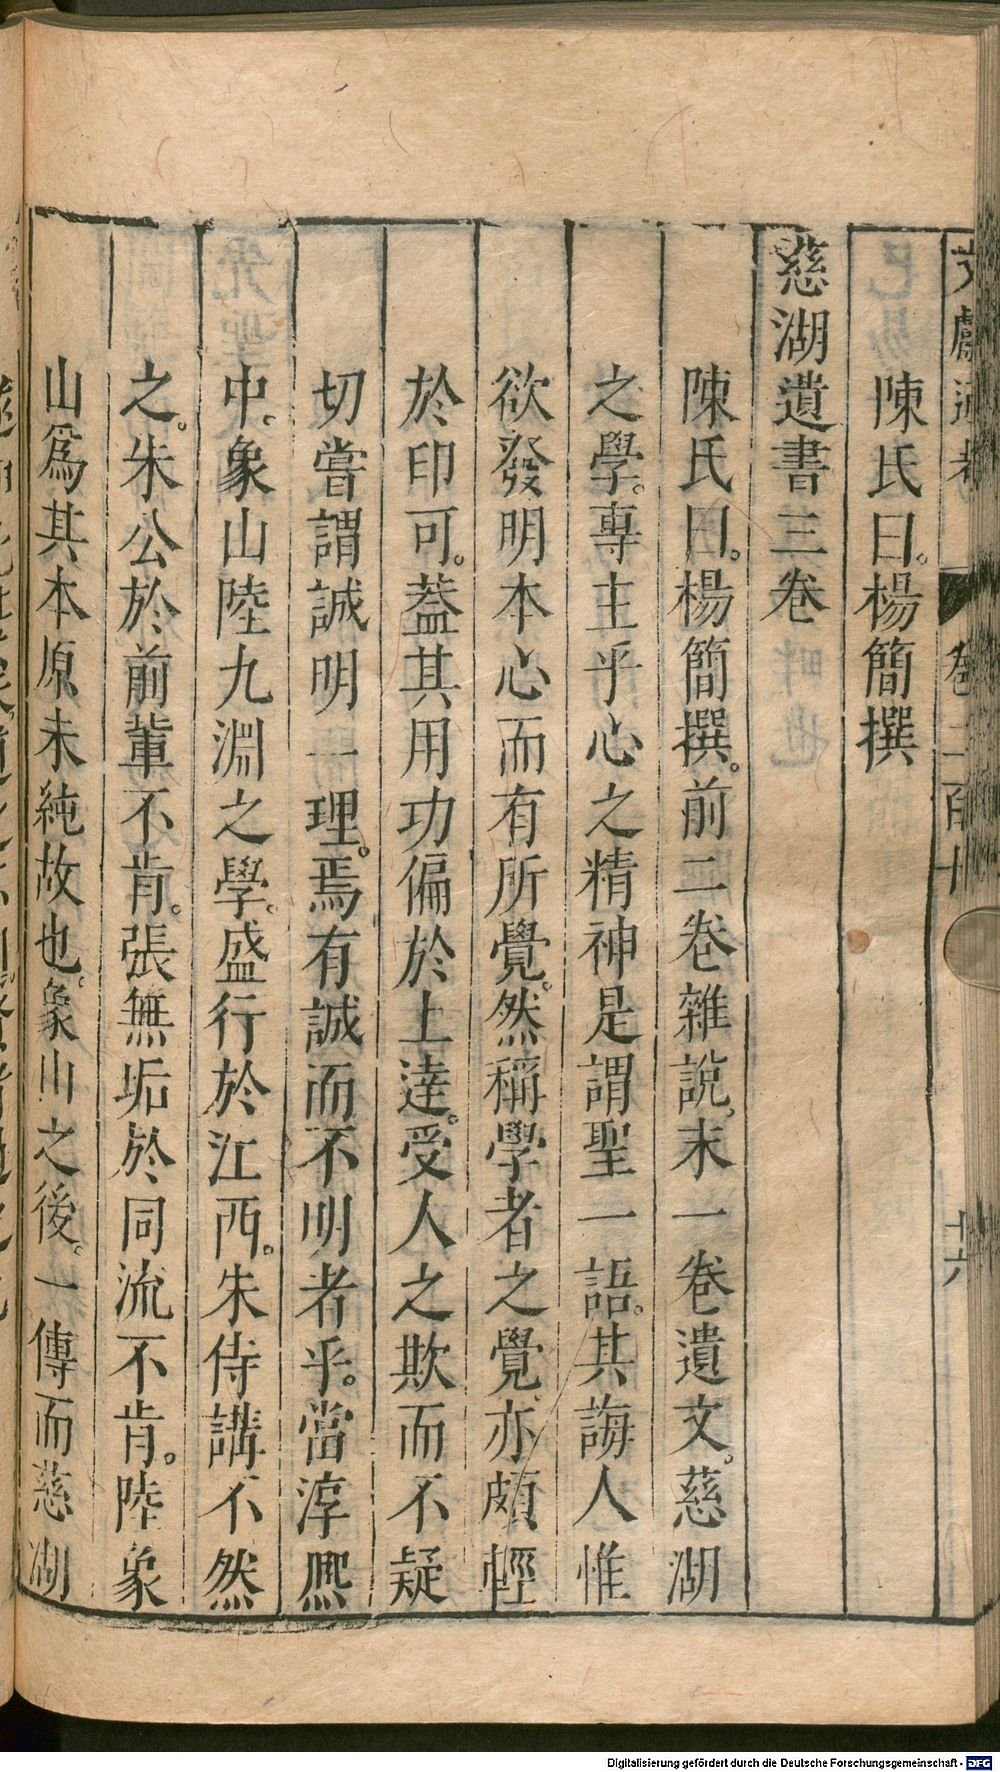 文獻通考 卷二百十 十六
陳氏曰。楊簡撰
慈湖遺書三卷
陳氏曰。楊簡撰。前二卷雜說,末一卷遺文。慈湖
之學。專主乎心之精神是謂聖一語。其誨人惟
欲發明本心而有所覺。然稱學者之覺,亦頗輕
於印可。蓋其用功偏於上達。受人之欺而不疑
切嘗謂誠明一理。焉有誠而不明者乎。當淳熈
中。象山陸九淵之學。盛行於江西。朱侍講不然
之。朱公於前輩不肯。張無垢於同流不肯。陸象
山爲其本原未純故也。象山之後。一傳而慈湖
Digitalisierung gefördert durch die Deutsche Forschungsgemeinschaft - DFG